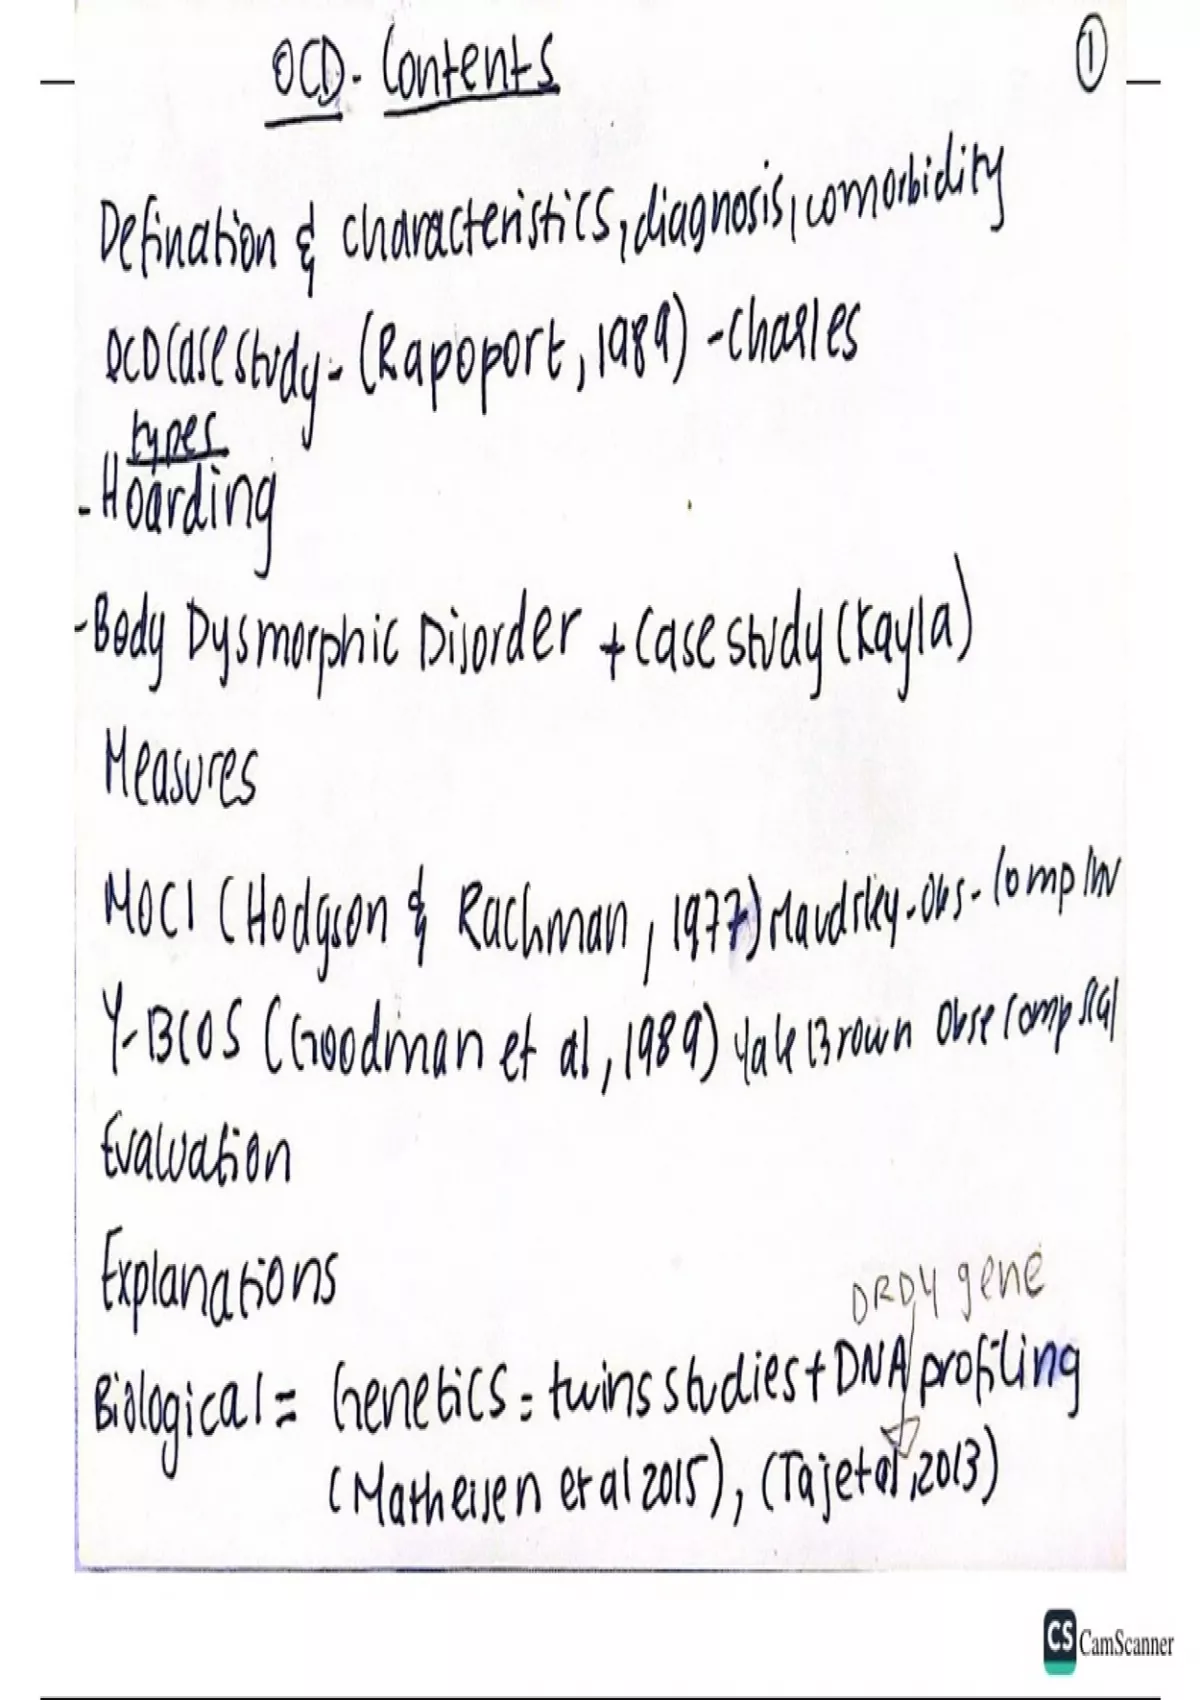 OCD - Contents
1
Defination & characteristics, diagnosis, comorbidity
OCD Case study - (Rapoport, 1989) - Charles
types
- Hoarding
- Body Dysmorphic Disorder + Case study (Kayla)
Measures
MOCI (Hodgson & Rachman, 1977) Maudsley-Obs-Comp Inv
Y-BCOS (Goodman et al, 1989) Yale Brown Obse Comp Scal
Evaluation
Explanations
DRD4 gene
Biological = Genetics = twins studies + DNA profiling
(Matheisen et al 2015), (Taj et al, 2013)
CS CamScanner